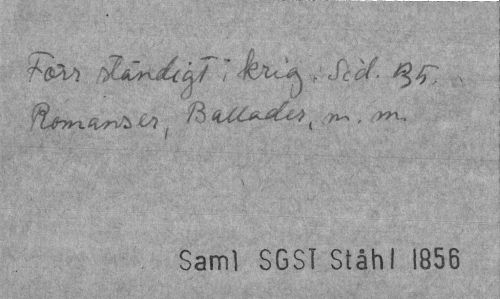 Förr ständigt i krig. Sid. 135.
Romanser, Ballader, m. m.
Saml SGST Ståhl 1856